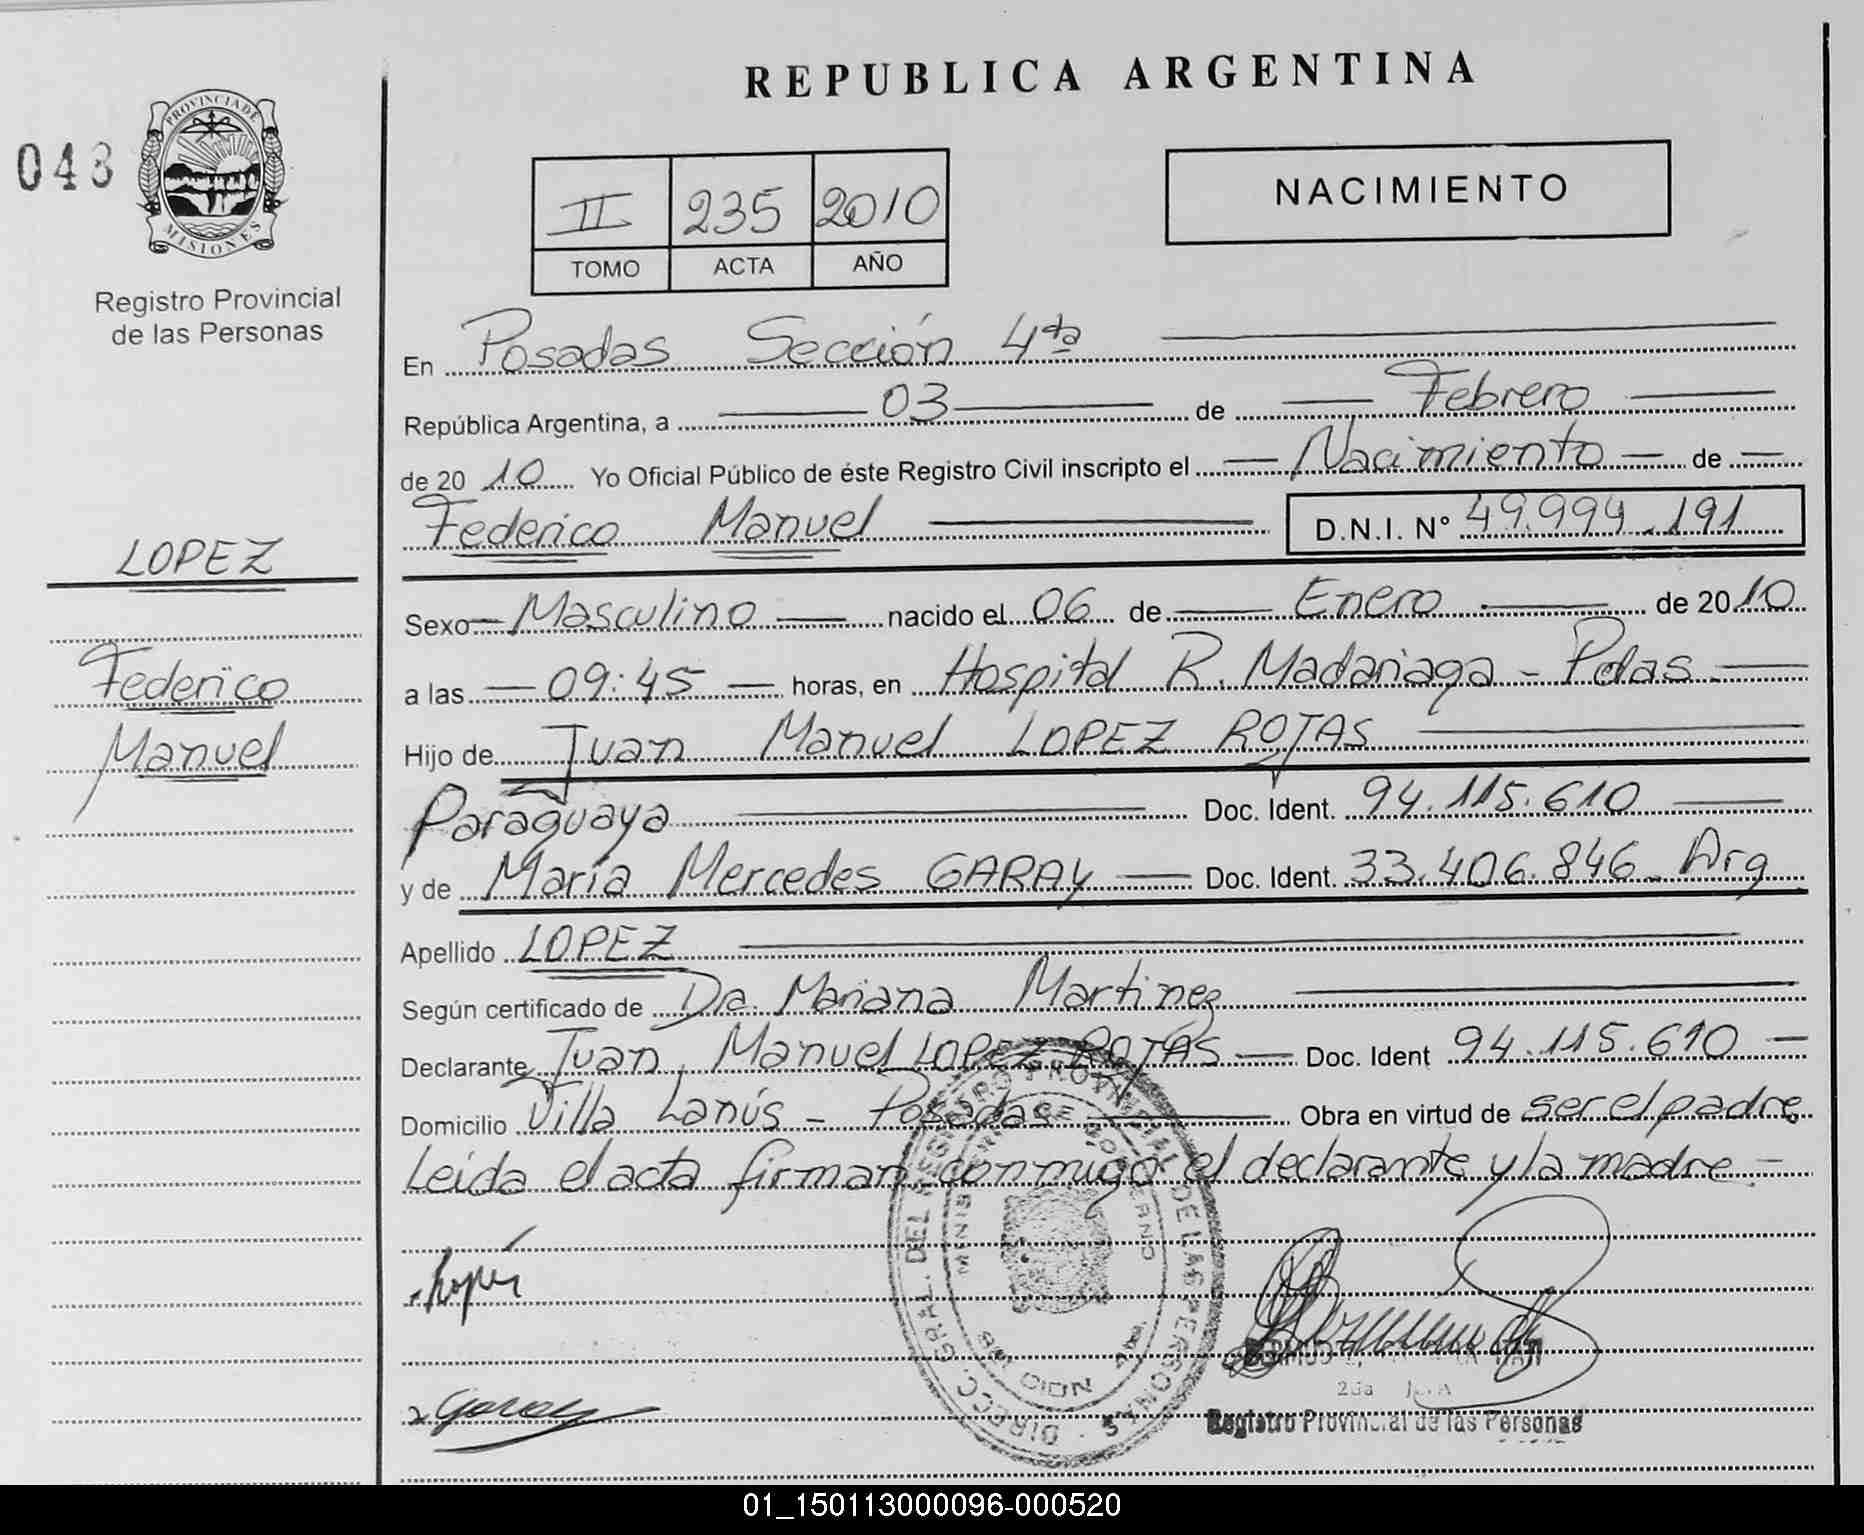 REPUBLICA ARGENTINA
043
PROVINCIA DE
MISIONES
Registro Provincial
de las Personas
II 235 2010
TOMO ACTA AÑO
NACIMIENTO
En Posadas Sección 4ta
República Argentina, a 03 de Febrero
de 2010 Yo Oficial Público de éste Registro Civil inscripto el Nacimiento de
Federico Manuel D.N.I. Nº 49.994.191
LOPEZ
Federico
Manuel
Sexo Masculino nacido el 06 de Enero de 2010
a las 09:45 horas, en Hospital R. Madariaga - Pdas
Hijo de Juan Manuel LOPEZ ROJAS
Paraguaya Doc. Ident. 94.115.610
y de María Mercedes GARAY Doc. Ident. 33.406.846. Arg
Apellido LOPEZ
Según certificado de Dra. Mariana Martinez
Declarante Juan Manuel LOPEZ ROJAS Doc. Ident 94.115.610
Domicilio Villa Lanús - Posadas Obra en virtud de ser el padre
Leida el acta firman conmigo el declarante y la madre
DIRECC. GRAL. DEL REGISTRO PROVINCIAL DE LAS PERSONAS
MINISTERIO DE GOBIERNO
MISIONES
Lopez
Garay
Registro Provincial de las Personas
01_150113000096-000520